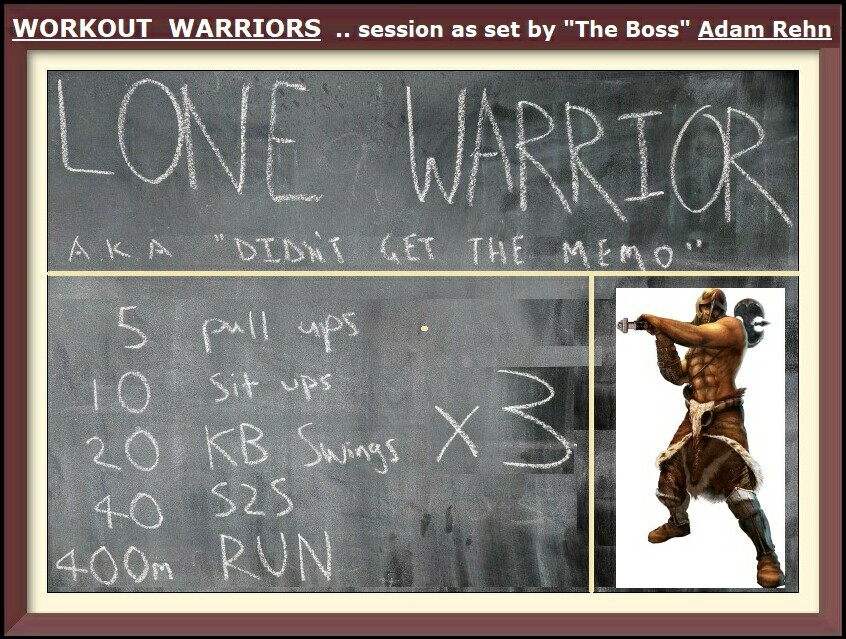 WORKOUT WARRIORS .. session as set by "The Boss" Adam Rehn
LONE WARRIOR
A.K.A "DIDN'T GET THE MEMO"
5 pull ups
10 sit ups
20 KB Swings
x3
40 S2S
400m RUN